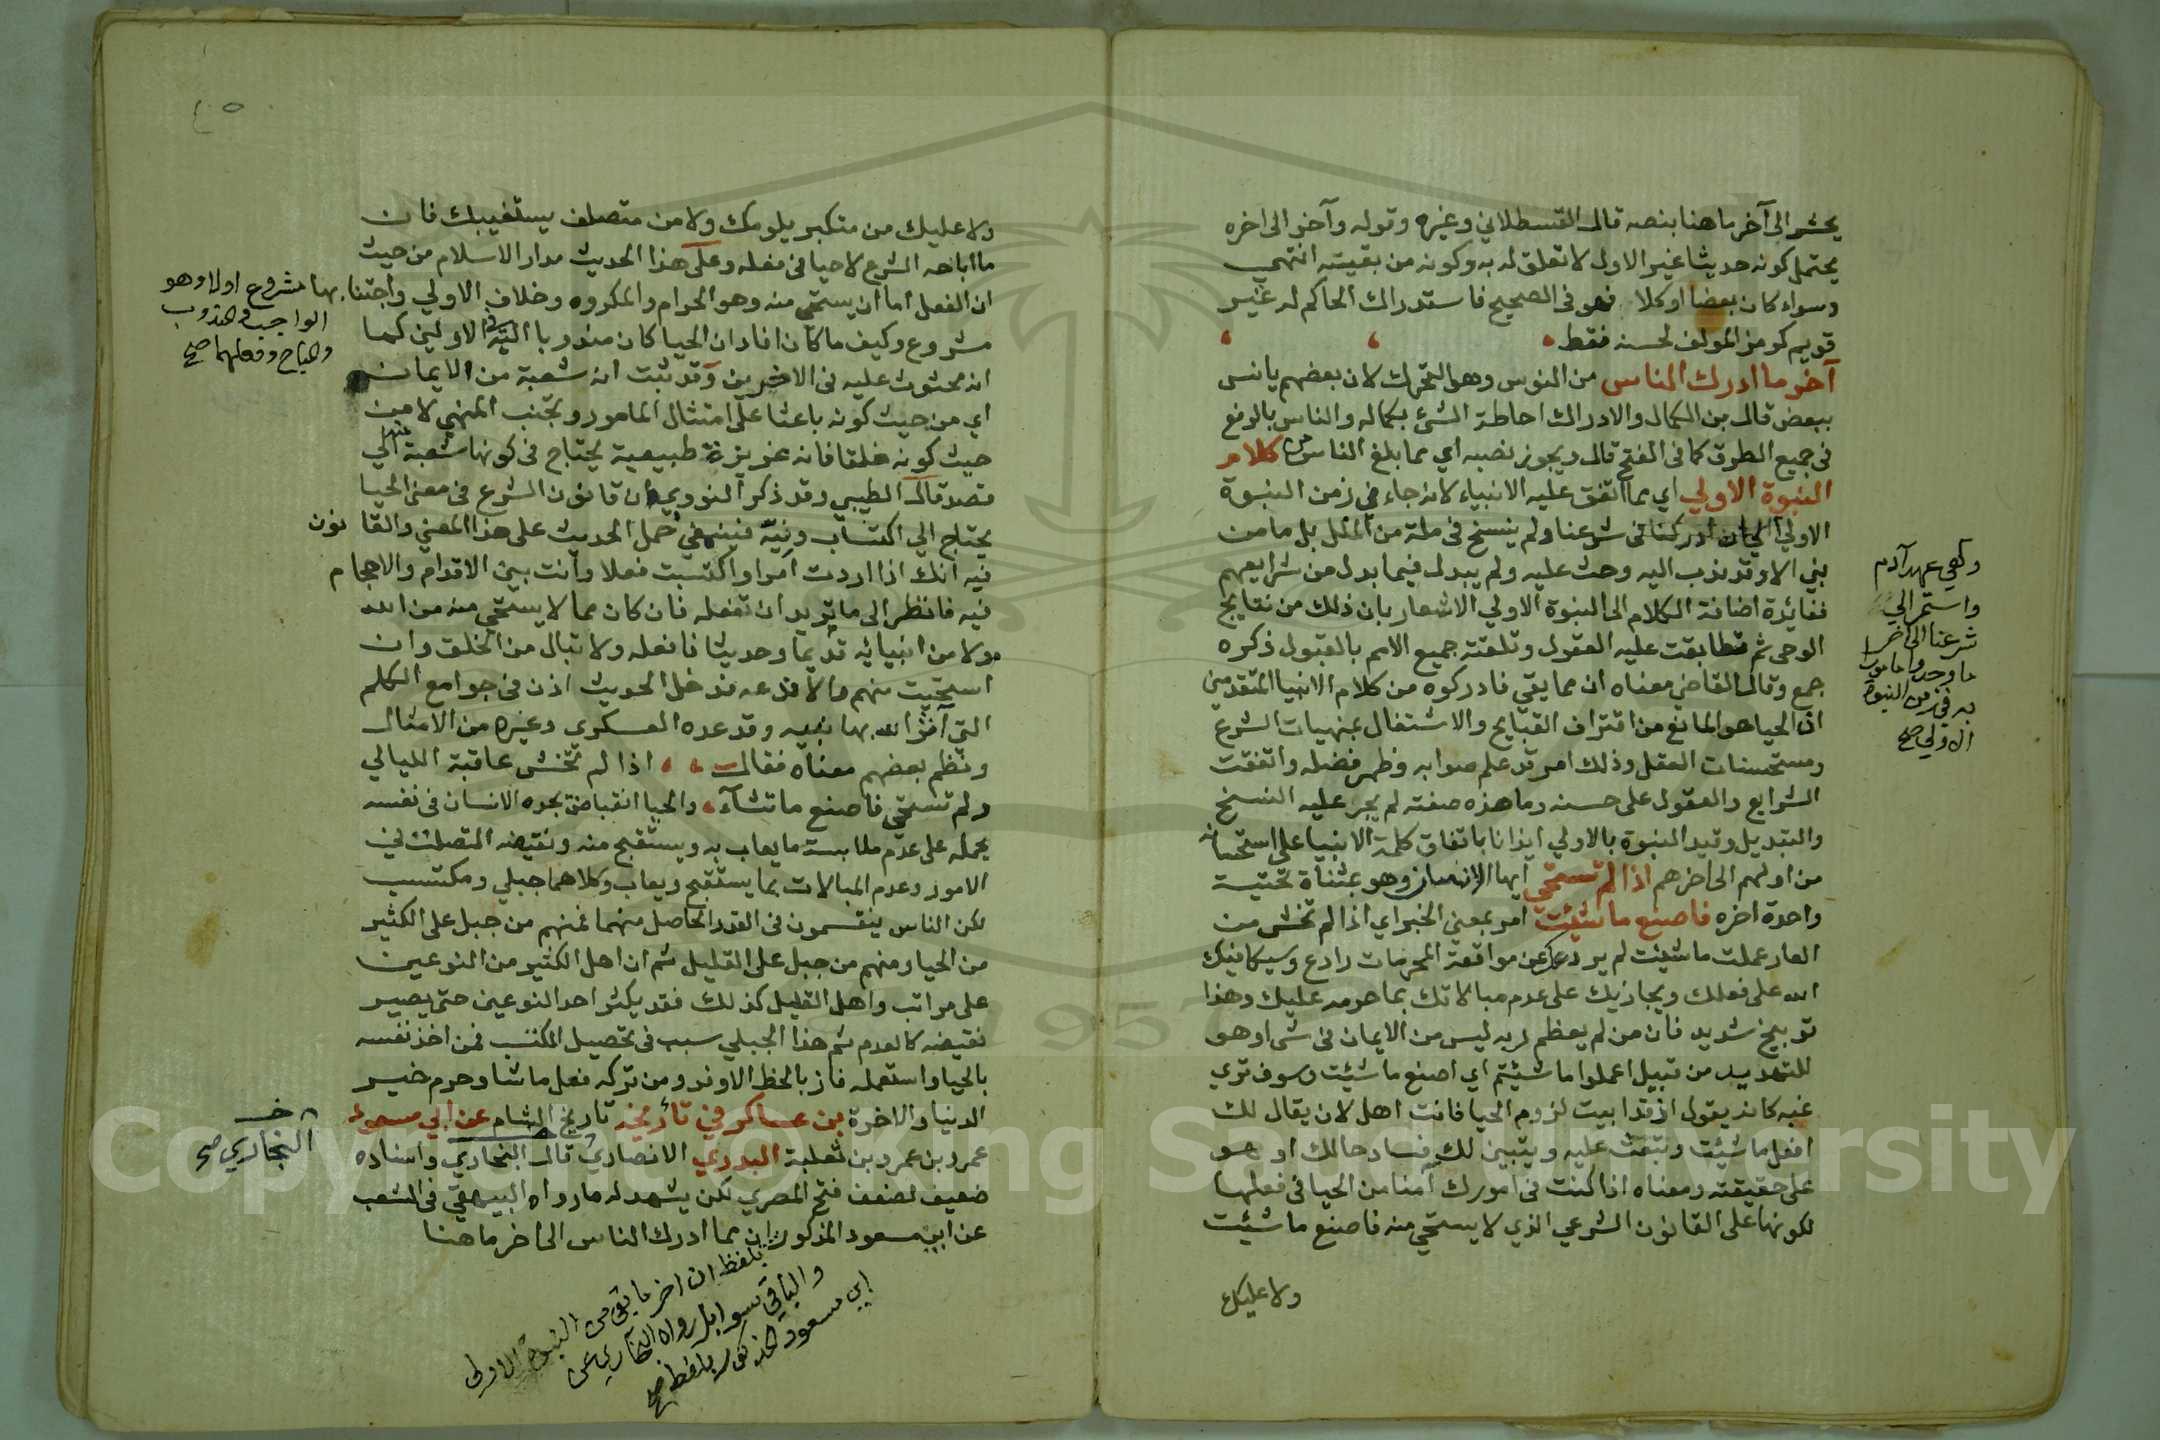 يحشر الى آخر ما هنا بنصه قال القسطلاني وغيره وقوله وآخر الى اخره
يحتمل كونه حديثا غير الاول لا تعلق له به وكونه من بقيته انتهي
وسواء كان بعضا او كلا فهو في الصحيح فاستدراك الحاكم له غير
قويم كرمز المولف لحسنه فقط
آخر ما ادرك الناس من النوس وهو التحرك لان بعضهم يانس
ببعض قال بن الكمال والادراك احاطة الشئ بكماله والناس بالرفع
في جميع الطرق كما في الفتح قال ويجوز نصبه اي مما بلغ الناس من كلام
النبوة الاولي اي مما اتفق عليه الانبياء لانه جاء في زمن النبوة
الاولي الي ان ادركنا في شرعنا ولم ينسخ في ملة من الملل بل ما من
نبي الا وقد ندب اليه وحث عليه ولم يبدل فيما بدل من شرايعهم
ففائدة اضافة الكلام الى النبوة الاولي الاشعار بان ذلك من نتايج
الوحى ثم تطابقت عليه العقول وتلقته جميع الامم بالقبول ذكره
جمع وقال القاضي معناه ان مما بقي فادركوه من كلام الانبيا المتقدمين
ان الحيا هو المانع من اقتراف القبايح والاشتغال بمنهيات الشرع
ومستحسنات العقل وذلك امر قد علم صوابه وظهر فضله واتفقت
الشرايع والعقول على حسنه وما هذه صفته لم يجر عليه النسخ
والتبديل وقيد النبوة بالاولي ايذانا باتفاق كلمة الانبيا على استحسانه
من اولهم الى اخرهم اذا لم تستحي ايها الانسان وهو بمثناة تحتية
واحدة اخره فاصنع ما شئت امر بمعني الخبر اي اذا لم تخش من
العار عملت ما شئت لم يردعك عن مواقعة المحرمات رادع وسيكافيك
الله على فعلك ويجازيك على عدم مبالاتك بما حرمه عليك وهذا
توبيخ شديد فان من لم يعظم ربه ليس من الايمان في شى او هو
للتهديد من قبيل اعملوا ما شئتم اي اصنع ما شئت وسوف تري
غبه كانه يقول اذ قد ابيت لزوم الحيا فانت اهل لان يقال لك
افعل ما شئت وتبعث عليه ويتبين لك فساد حالك او هو
على حقيقته ومعناه اذا كنت في امورك آمنا من الحيا في فعلها
لكونها على القانون الشرعي الذي لا يستحي منه فاصنع ما شئت
ولا عليك
وهي عهد آدم
واستمر الي
شرعنا الى اخر
ما وجد
به في زمن النبوة
الاولي صح
ولا عليك من متكبر يلومك ولا من متصلف يستغيبك فان
ما اباحه الشرع لا حيا في فعله وعلى هذا الحديث مدار الاسلام من حيث
ان الفعل اما ان يستحي منه وهو الحرام والمكروه وخلاف الاولي واجتنابها مشروع اولا وهو
الواجب والمندوب
والمباح وفعلها صح
مشروع وكيف ما كان افاد ان الحيا كان مندوبا اليه في الاولين كما
انه محثوث عليه في الاخرين وقد ثبت انه شعبة من الايمان
اي من حيث كونه باعثا على امتثال المامور وتجنب المنهي لا من
حيث كونه خلقا فانه غريزة طبيعية يحتاج في كونها شعبة منه الي
قصد قال الطيبي وقد ذكر النووي ان قانون الشرع في معني الحيا
يحتاج الي اكتساب ونية فينبغي حمل الحديث على هذا المعني والقانون
فيه انك اذا اردت امرا واكتسبت فعلا وانت بين الاقدام والاحجام
فيه فانظر الى ما تريد ان تفعله فان كان مما لا يستحي منه من الله
ولا من انبيائه قديما وحديثا فافعله ولا تبال من الخلق وان
استحيت منهم والا فدعه فدخل الحديث اذن في جوامع الكلم
التي آثر الله بها نبيه وقد عده العسكري وغيره من الامثال
ونظم بعضهم معناه فقال اذا لم تخش عاقبة الليالي
ولم تستحي فاصنع ما تشآء والحيا انقباض يجده الانسان في نفسه
يحمله على عدم ملابسة ما يعاب به ويستقبح منه ونقيضه التصلف في
الامور وعدم المبالات بما يستقبح ويعاب وكلاهما جبلي ومكتسب
لكن الناس ينقسمون في القدر الحاصل منهما فمنهم من جبل على الكثير
من الحيا ومنهم من جبل على القليل ثم ان اهل الكثير من النوعين
على مراتب واهل القليل كذلك فقد يكثر احد النوعين حتى يصير
نقيضه كالعدم ثم هذا الجبلي سبب في تحصيل المكتسب فمن اخذ نفسه
بالحيا واستعمله فاز بالحظ الاوفر ومن تركه فعل ما شا وحرم خير
الدنيا والاخرة بن عساكر في تأريخه تاريخ الشام عن ابي مسعود
عمرو بن عمرو بن ثعلبة البدري الانصاري قال البخاري واسناده
ضعيف لضعف فتح المصري لكن يشهد له ما رواه البيهقي في الشعب
عن ابن مسعود المذكور ان مما ادرك الناس الى اخر ما هنا
خـ
البخاري صح
بلفظ ان اخر ما بقي من النبوة الاولى
والباقي سوا بل رواه البخاري عن
ابي مسعود المذكور بلفظ صح
Copyright © King Saud University
1957